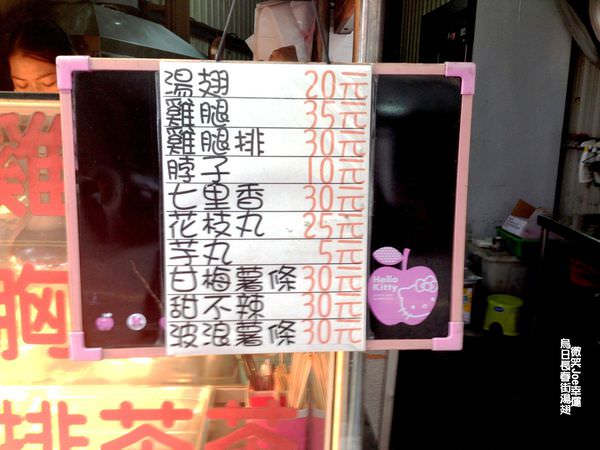 湯翅 20元
雞腿 35元
雞腿排 30元
脖子 10元
七里香 30元
花枝丸 25元
芋丸 5元
甘梅薯條 30元
甜不辣 30元
波浪薯條 30元
雞
胸
排
Hello
Kitty
微笑Joe幸運
烏日長春街湯翅